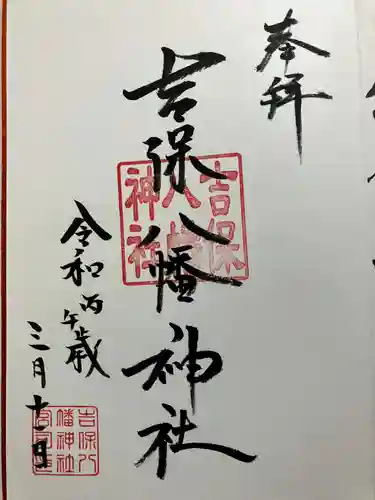 奉拝
吉保八幡神社
令和丙午歳
三月十一日
吉保八幡神社
吉保八
幡神社